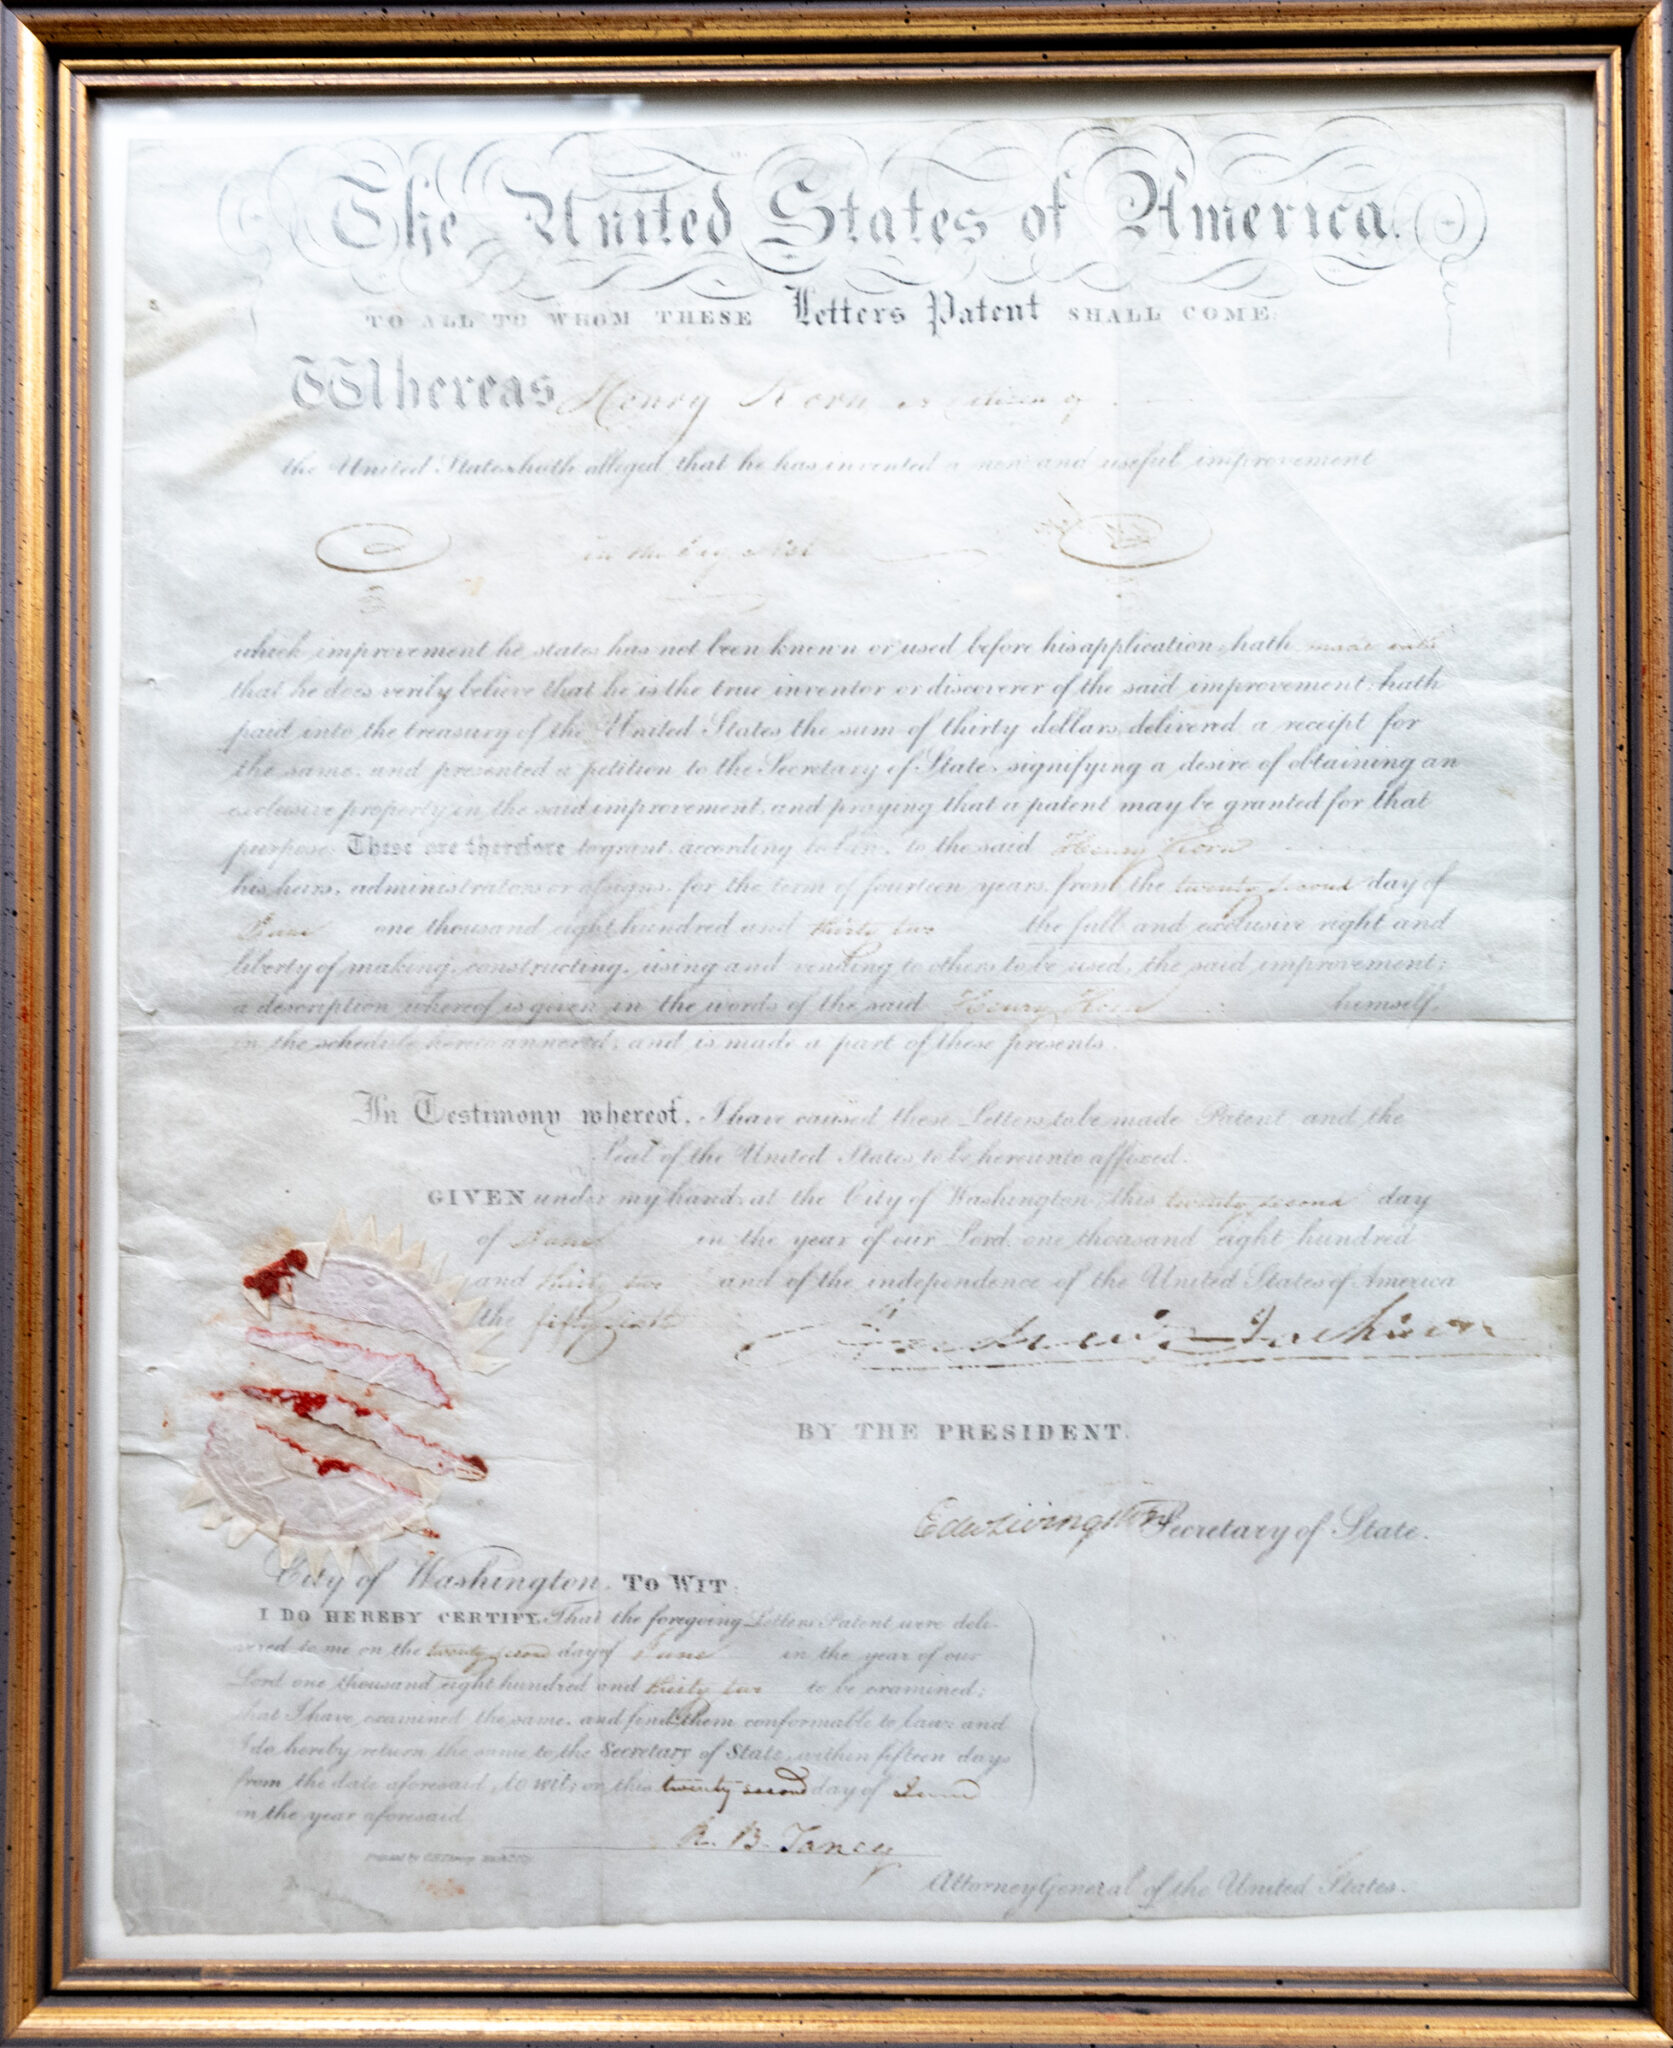 The United States of America.
TO ALL TO WHOM THESE Letters Patent SHALL COME:
Whereas Henry Korn a citizen of
the United States hath alleged that he has invented a new and useful improvement
in the
which improvement he states has not been known or used before his application; hath made oath
that he does verily believe that he is the true inventor or discoverer of the said improvement; hath
paid into the treasury of the United States the sum of thirty dollars, delivered a receipt for
the same, and presented a petition to the Secretary of State, signifying a desire of obtaining an
exclusive property in the said improvement, and praying that a patent may be granted for that
purpose. These are therefore to grant, according to law, to the said Henry Korn
his heirs, administrators or assigns, for the term of fourteen years, from the twenty second day of
June one thousand eight hundred and thirty two the full and exclusive right and
liberty of making, constructing, using and vending to others to be used, the said improvement;
a description whereof is given in the words of the said Henry Korn himself,
in the schedule hereto annexed, and is made a part of these presents.
In Testimony whereof, I have caused these Letters to be made Patent and the
Seal of the United States to be hereunto affixed.
GIVEN under my hand, at the City of Washington, this twenty second day
of June in the year of our Lord, one thousand eight hundred
and thirty two and of the independence of the United States of America
the fifty sixth
Andrew Jackson
BY THE PRESIDENT.
Edw Livingston Secretary of State.
City of Washington, TO WIT:
I DO HEREBY CERTIFY, That the foregoing Letters Patent were deli-
vered to me on the twenty second day of June in the year of our
Lord one thousand eight hundred and thirty two to be examined;
that I have examined the same, and find them conformable to law; and
I do hereby return the same to the Secretary of State, within fifteen days
from the date aforesaid, to wit; on this twenty second day of June
in the year aforesaid.
R. B. Taney
Attorney General of the United States.